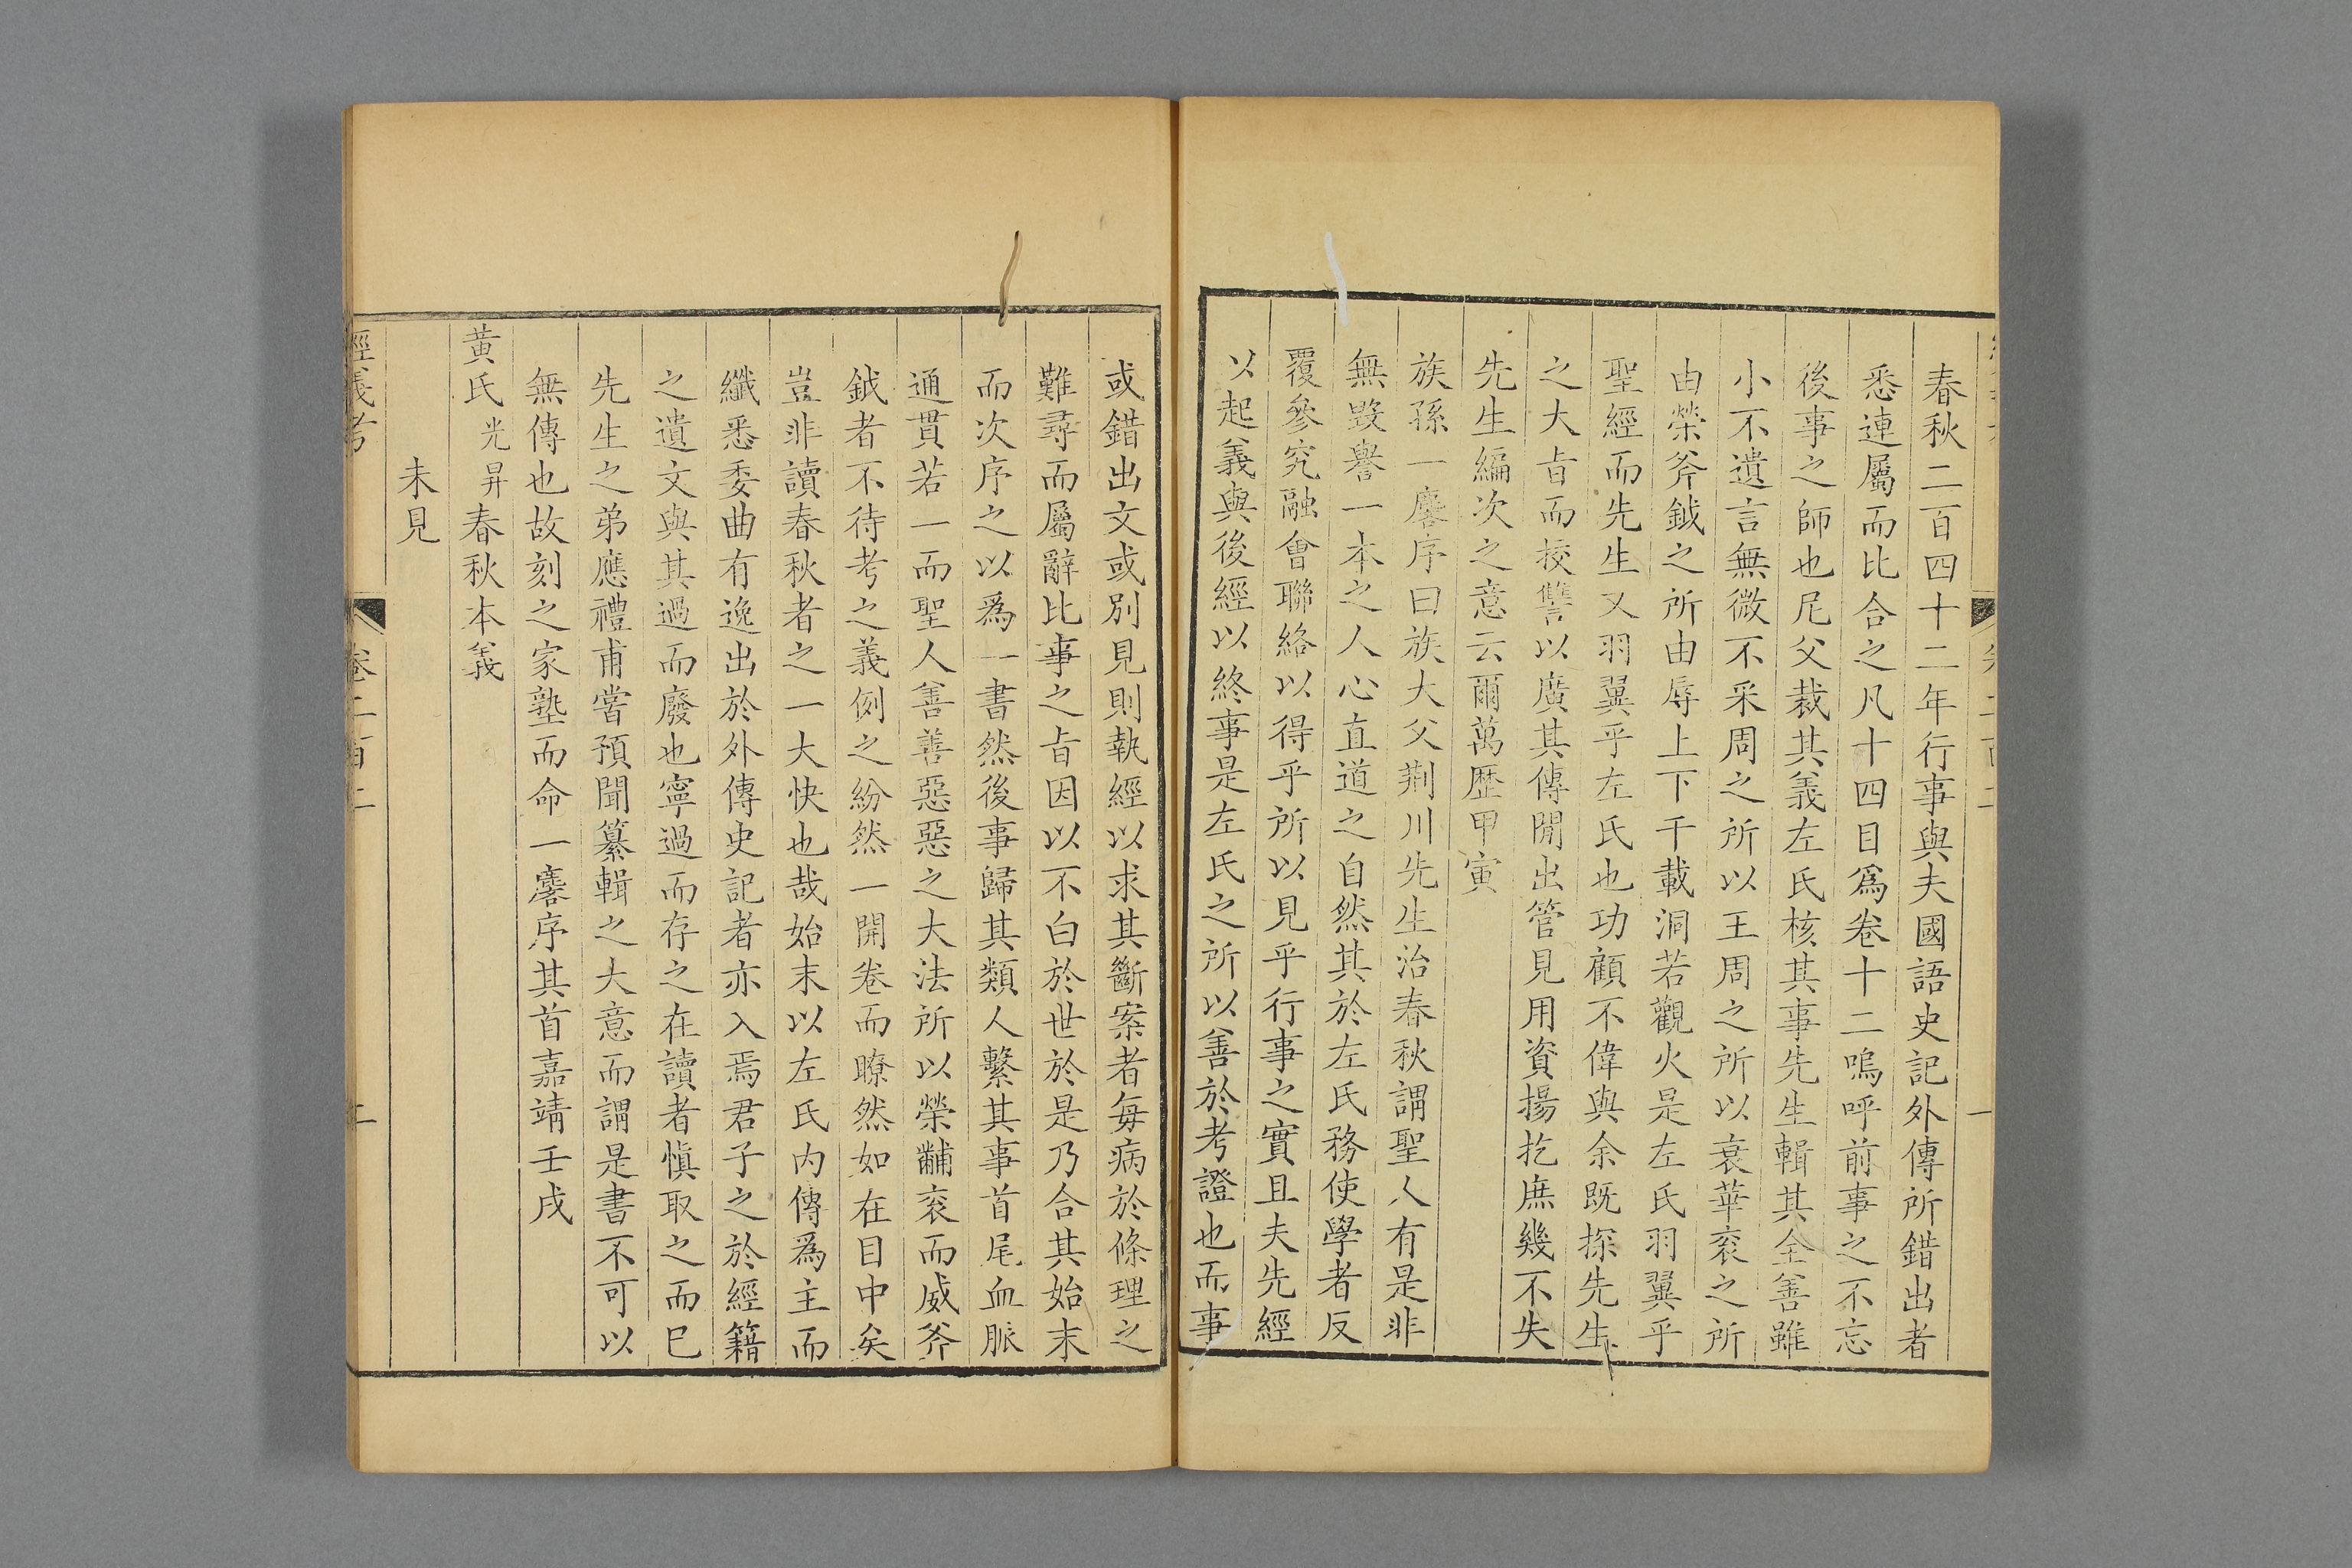 春秋二百四十二年行事與夫國語史記外傳所錯出者
悉連屬而比合之凡十四目爲卷十二嗚呼前事之不忘
後事之師也尼父裁其義左氏核其事先生輯其全善雖
小不遺言無微不采周之所以王周之所以衰華衮之所
由榮斧鉞之所由辱上下千載洞若觀火是左氏羽翼乎
聖經而先生又羽翼乎左氏也功顧不偉與余既探先生
之大㫖而挍讐以廣其傳閒出管見用資揚扢庶幾不失
先生編次之意云爾萬歷甲寅
族孫一麐序曰族大父荆川先生治春秋謂聖人有是非
無毀譽一本之人心直道之自然其於左氏務使學者反
覆參究融會聯絡以得乎所以見乎行事之實且夫先經
以起義與後經以終事是左氏之所以善於考證也而事
或錯出文或別見則執經以求其斷案者每病於條理之
難尋而屬辭比事之㫖因以不白於世於是乃合其始末
而次序之以爲一書然後事歸其類人繫其事首尾血脈
通貫若一而聖人善善惡惡之大法所以榮黼衮而威斧
鉞者不待考之義例之紛然一開卷而瞭然如在目中矣
豈非讀春秋者之一大快也哉始末以左氏内傳爲主而
纖悉委曲有逸出於外傳史記者亦入焉君子之於經籍
之遺文與其過而廢也寧過而存之在讀者慎取之而已
先生之弟應禮甫嘗預聞纂輯之大意而謂是書不可以
無傳也故刻之家塾而命一麐序其首嘉靖壬戌
黄氏光昇春秋本義
未見
經義考 卷二百二 二